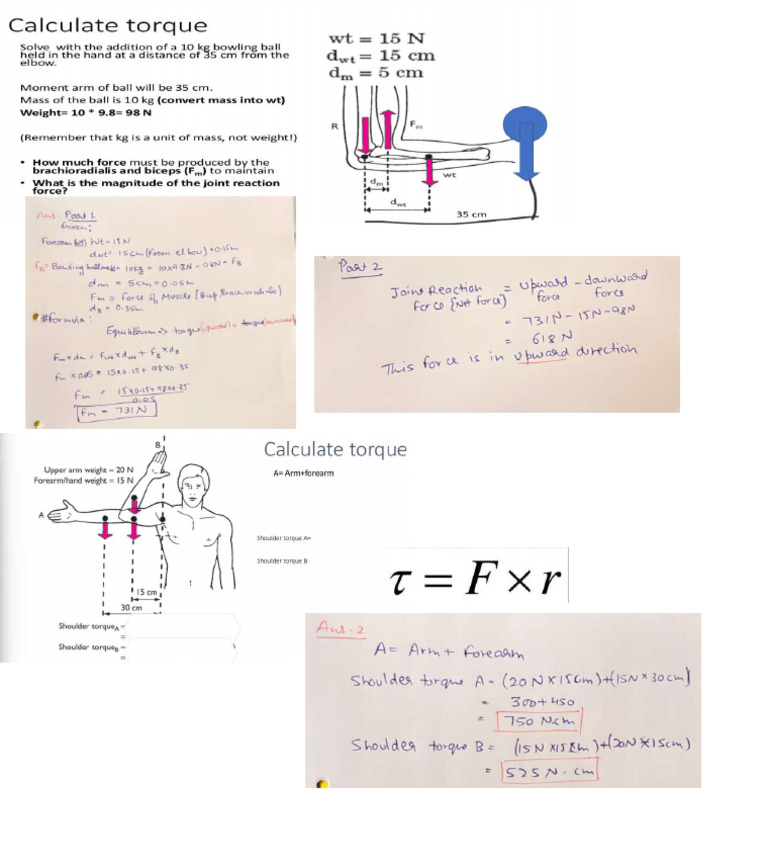 Calculate torque
Solve with the addition of a 10 kg bowling ball
held in the hand at a distance of 35 cm from the
elbow.
Moment arm of ball will be 35 cm.
Mass of the ball is 10 kg (convert mass into wt)
Weight= 10 * 9.8= 98 N
(Remember that kg is a unit of mass, not weight!)
• How much force must be produced by the
brachioradialis and biceps (Fm) to maintain
• What is the magnitude of the joint reaction
force?
wt = 15 N
dwt = 15 cm
dm = 5 cm
R
Fm
wt
dm
dwt
35 cm
Ans- Part 1
Given:
Forearm Wt = 15N
dwt = 15cm (from elbow) = 0.15m
FB = Bowling ball mass = 10kg = 10x9.8N = 98N = FB
dm = 5cm = 0.05m
Fm = Force of Muscle
dB = 0.35m
# formula:
Equilibrium => torque = torque
Fm x dm = Fwt x dwt + FB x dB
Fm x 0.05 = 15x0.15 + 98x0.35
Fm = 15x0.15+98x0.35
0.05
Fm = 731N
Part 2
Joint Reaction = Upward - downward
force {Net force} force force
= 731N - 15N - 98N
= 618 N
This force is in upward direction
Calculate torque
A= Arm+forearm
Upper arm weight = 20 N
Forearm/hand weight = 15 N
B
A
15 cm
30 cm
Shoulder torque A=
Shoulder torque B
Shoulder torqueA =
=
Shoulder torqueB =
=
τ = F × r
Ans-2
A = Arm + forearm
Shoulder torque A = (20N x 15cm)+(15N x 30cm)
= 300+450
= 750 N.cm
Shoulder torque B = (15N x15cm)+(20N x15cm)
= 525 N.cm